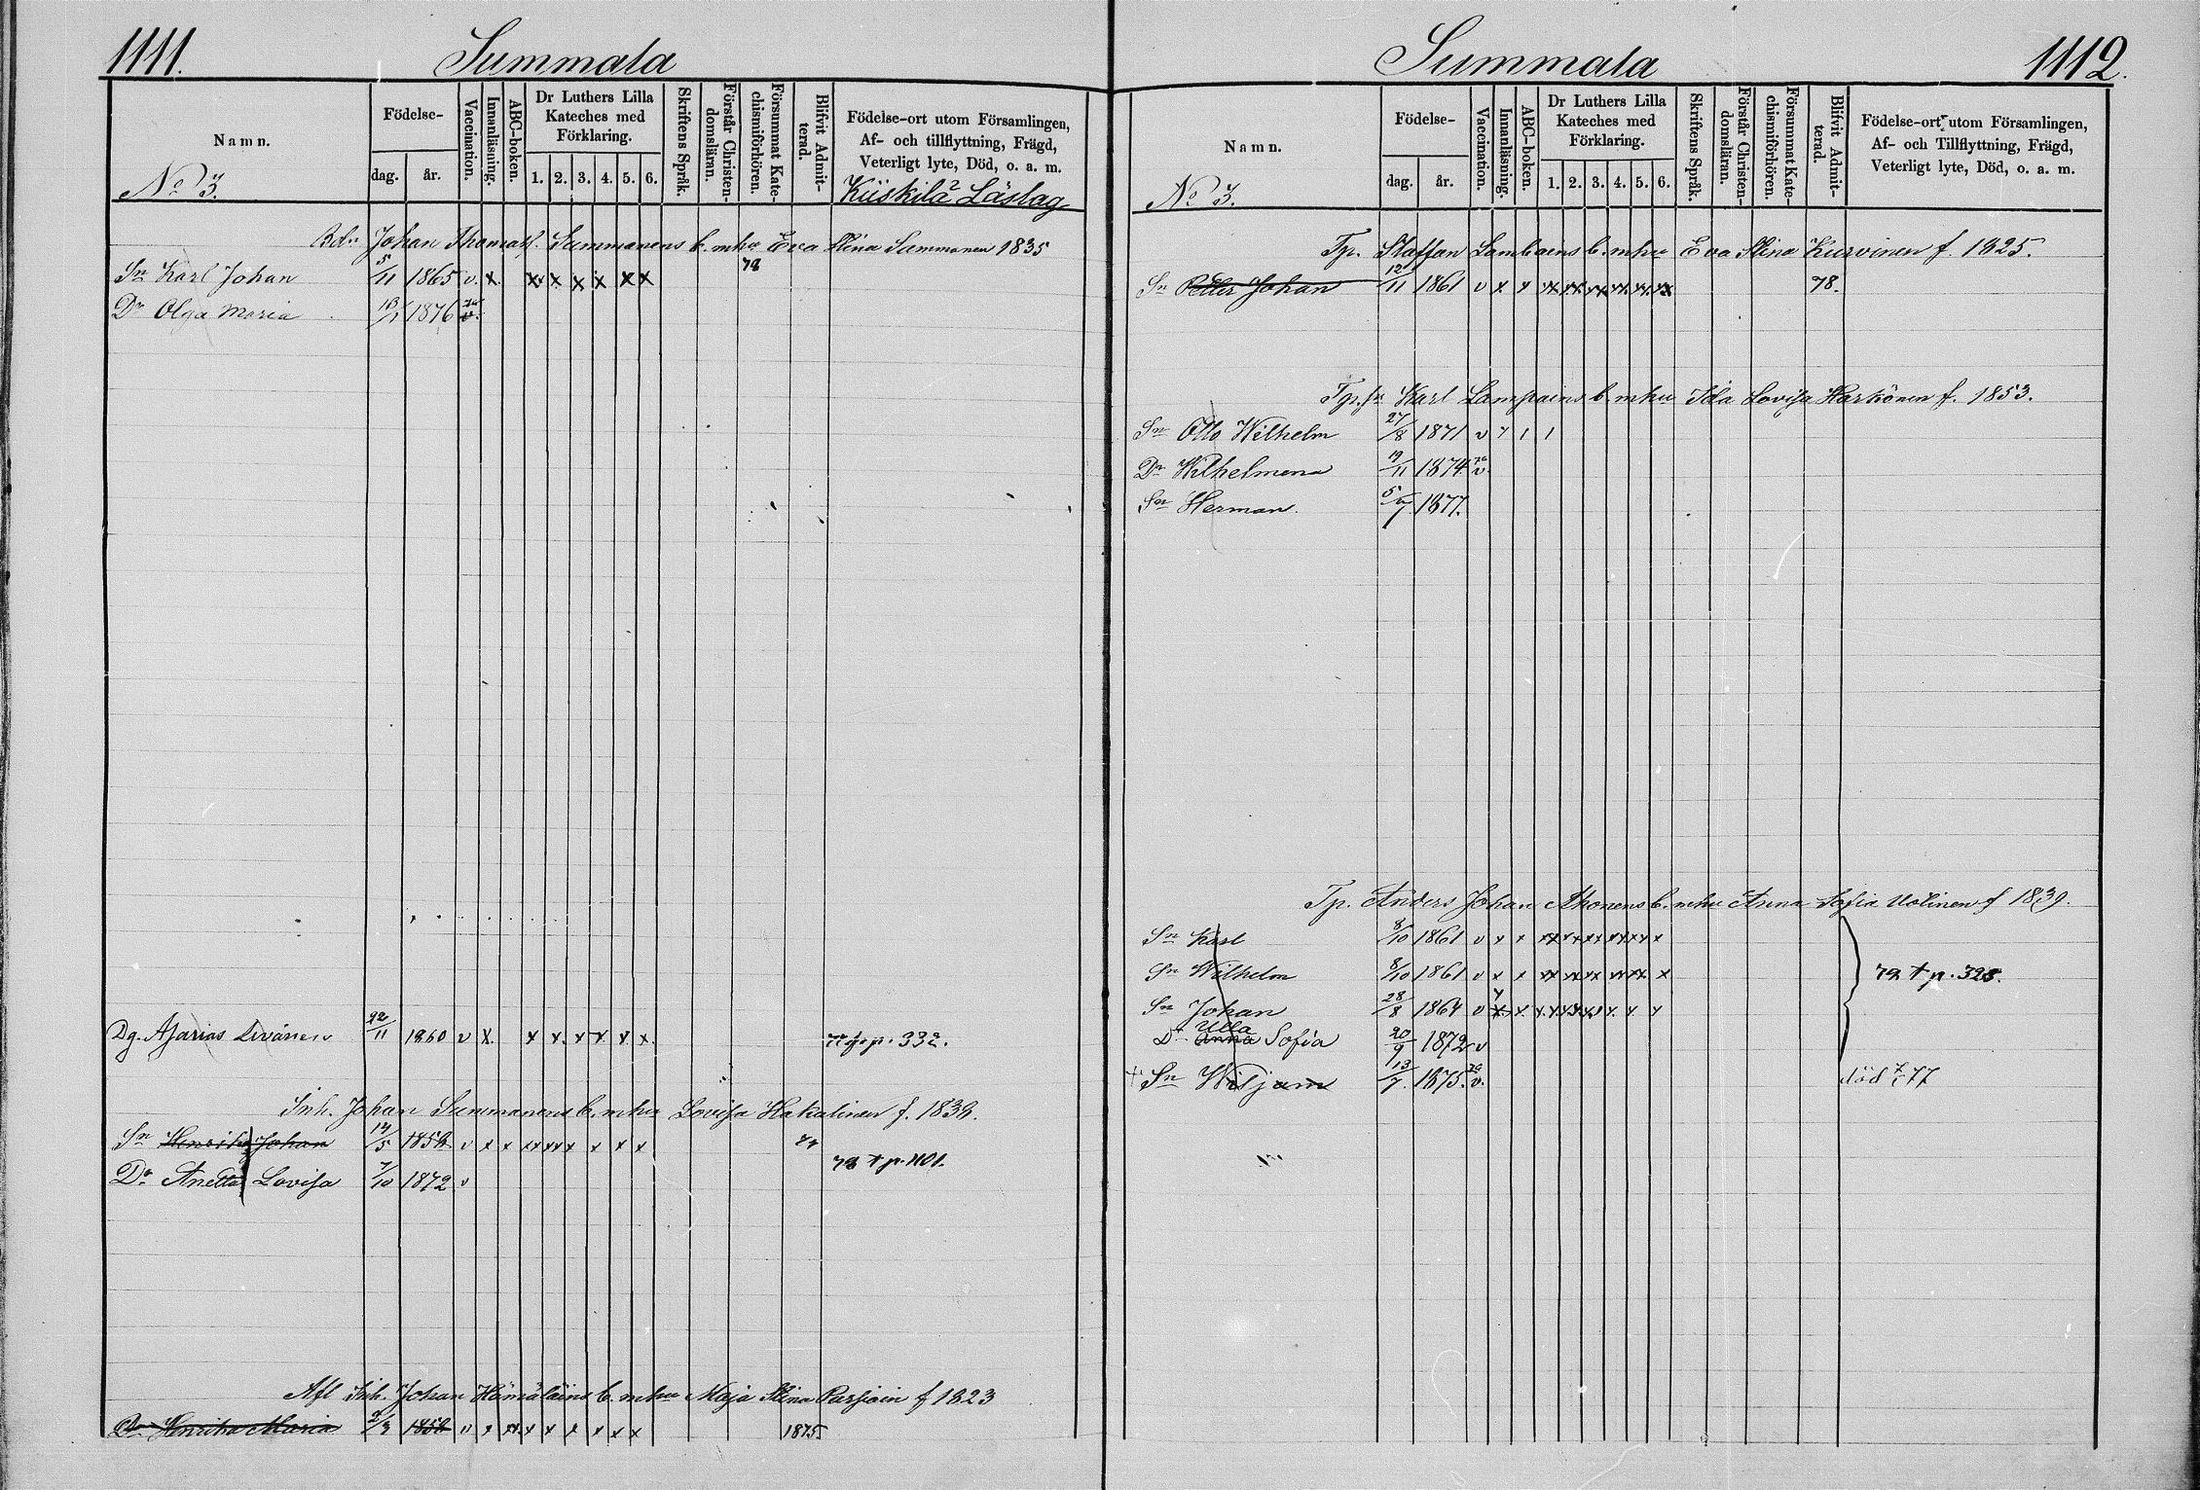 1111. Summala
Namn. Födelse- dag. år. Vaccination. Innanläsning. ABC-boken. Dr Luthers Lilla Kateches med Förklaring. 1. 2. 3. 4. 5. 6. Skriftens Språk. Förstår Christendomsläran. Försummat Katechismiförhören. Blifvit Admitterad. Födelse-ort utom Församlingen, Af- och tillflyttning, Frägd, Veterligt lyte, Död, o. a. m.
No 3. Kiiskilä Läslag
Johan Thomass. Summanens b. m. hu Eva Stina Summanen 1835
Sn Karl Johan 5/11 1865 v. x x x x x x x 78
Dr Olga Maria 1876 v.
Dg. Asarias Livánen 22/11 1860 v x. x x. x x x x. p. 332.
Inh. Johan Summanens b. m. hu Lovisa Hakulinen f. 183
Sn Henrik Johan 14/5 185 v x x xx xx x x x x
78 † p. 1101.
Dr Anetta Lovisa 7/10 1872 v
Afl Inh. Johan Hämäläins b. m. hu Maja Stina Parsiain f 1823
Dr Henrika Maria 1858 v x xx. x x x x x x 1875.
Summala 1112.
Namn. Födelse- dag. år. Vaccination. Innanläsning. ABC-boken. Dr Luthers Lilla Kateches med Förklaring. 1. 2. 3. 4. 5. 6. Skriftens Språk. Förstår Christendomsläran. Försummat Katechismiförhören. Blifvit Admitterad. Födelse-ort utom Församlingen, Af- och Tillflyttning, Frägd, Veterligt lyte, Död, o. a. m.
No 3.
Tp. Staffan Lambains b. m. hu Eva Stina Kurvinen f. 1825.
Sn Petter Johan 12/11 1861 v x x xx xx xx xx xx xx 78.
Tp. sn Karl Lampains b. m. hu Ida Lovisa Harkönen f. 1853.
Sn Otto Wilhelm 27/8 1871 v y 1 1
Dr Wilhelmena 19/11 1874 v.
Sn Herman. 1877.
Tp. Anders Johan Ahonens b. m. hu Anna Sofia Uotinen f 1839.
Sn Karl 8/10 1861 v x x xx xx xx xx xx x
Sn Wilhelm 8/10 1861 v x x xx xx xx xx xx x † p. 328.
Sn Johan 28/8 1864 v x x
Ulla
Dr Anna Sofia 20/9 1872 v
† Sn Wiljam 13/7. 1875. v. död 77